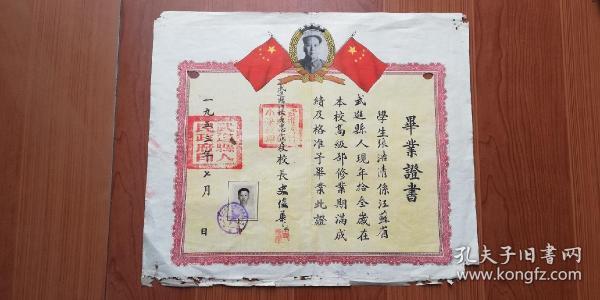 畢業證書
學生張治清係江蘇省
武進縣人現年拾叁歲在
本校高級部修業期滿成
績及格准予畢業此證
校長史俊
一九五三年七月 日
孔夫子旧書网
www.kongfz.com